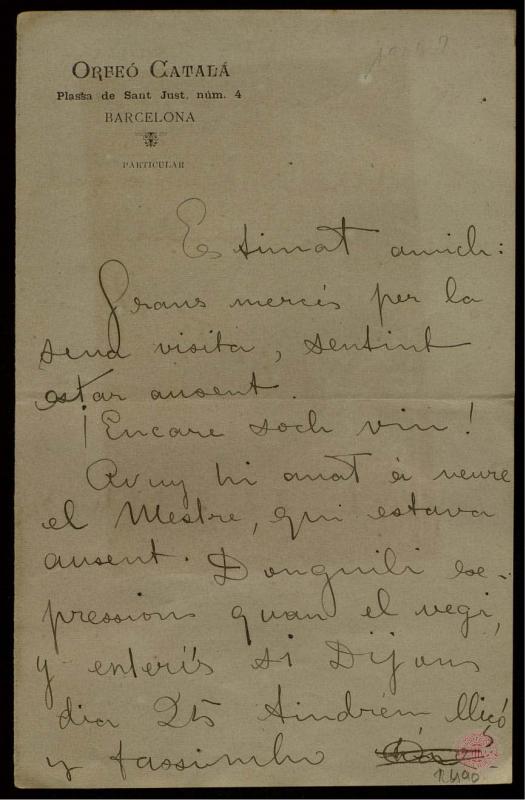 ORFEÓ CATALÁ
Plassa de Sant Just, núm. 4
BARCELONA
PARTICULAR
Estimat amich:
Grans mercés per la
seua visita, sentint
estar ausent.
¡Encare soch viu!
Avuy hi anat á veure
el Mestre, qui estava
ausent. Donguili ex-
pressions quan el vegi,
y enteris si Dijous
dia 25 tindrém lliçó
y fassimho